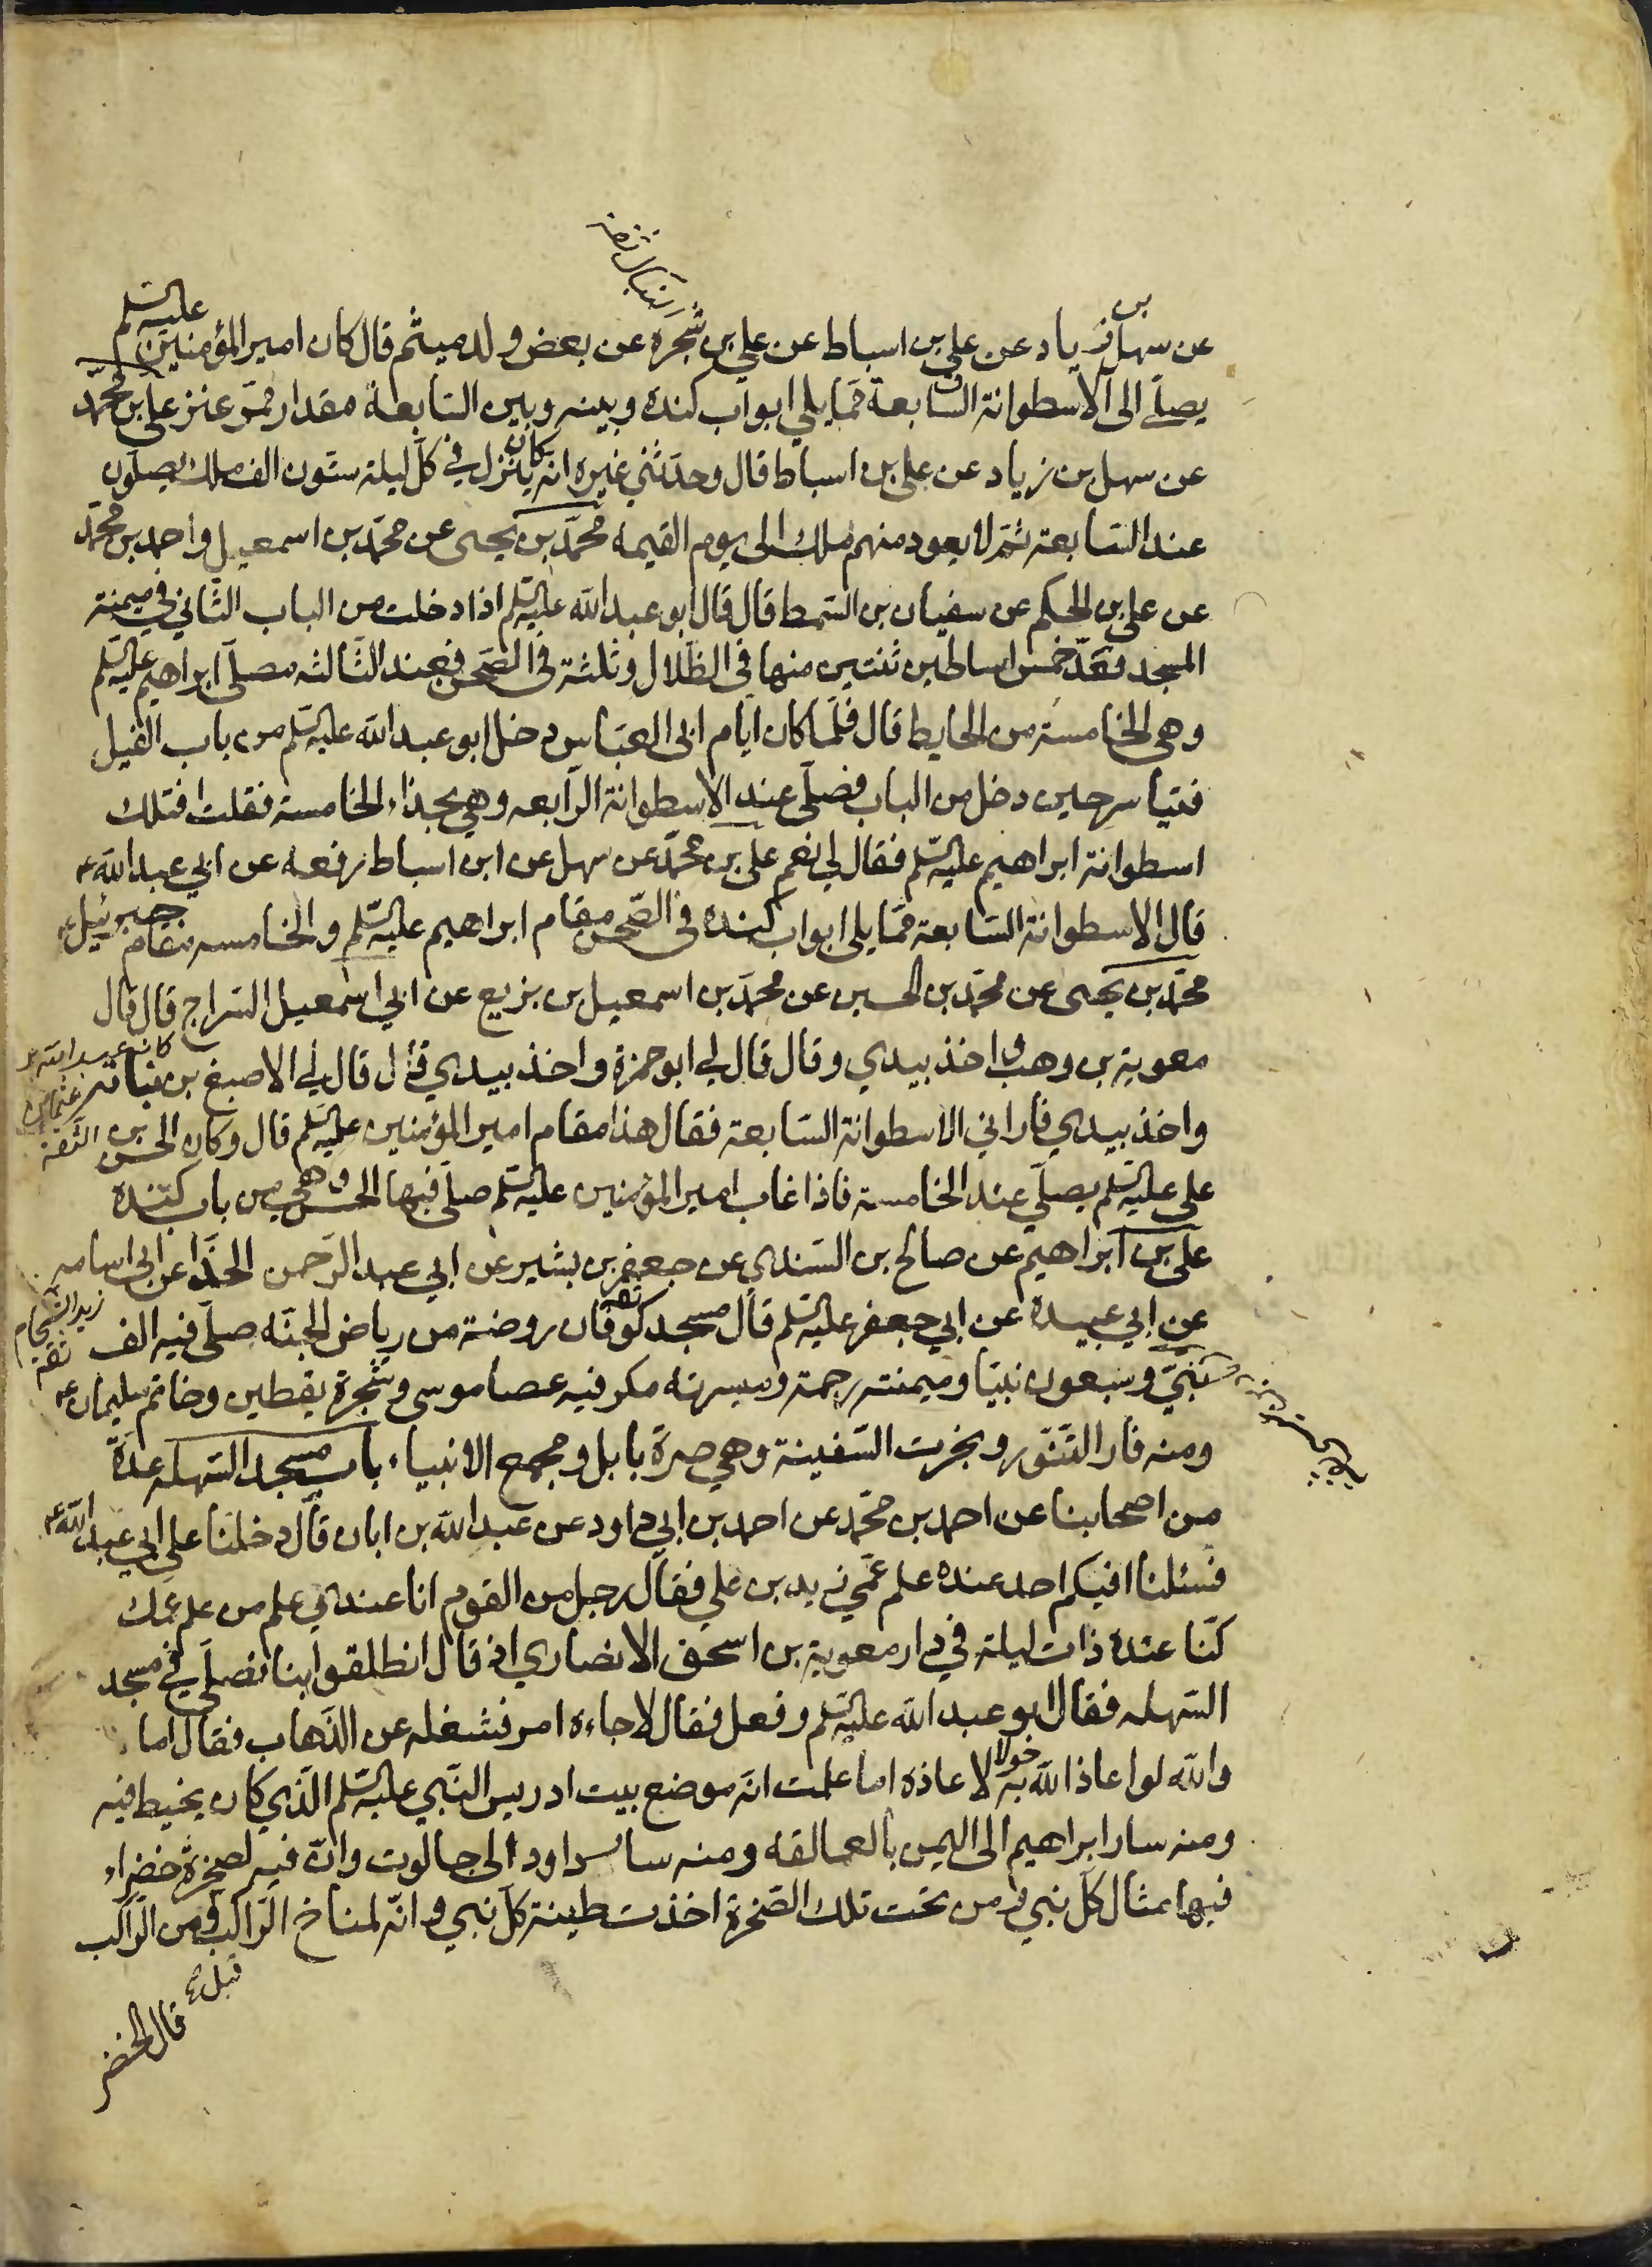 عن سهل بن زياد عن علي بن اسباط عن علي بن شجرة عن بعض ولد ميثم قال كان امير المؤمنين عليه السلم
يصلّي الى الاسطوانة السابعة ممّا يلي ابواب كندة وبينه وبين السابعة مقدار ممرّ عنز علي بن محمّد
عن سهل بن زياد عن علي بن اسباط قال وحدّثني غيره انّه كان ينزل في كلّ ليلة ستّون الف ملك يصلّون
عند السّابعة ثمّ لا يعود منهم ملك الى يوم القيمة محمّد بن يحيى عن محمّد بن اسمعيل واحمد بن محمّد
عن علي بن الحكم عن سفيان بن السّمط قال قال ابو عبد الله عليه السلم اذا دخلت من الباب الثّاني في ميمنة
المسجد فعدّ خمس اساطين ثنتين منها في الظّلال وثلثة في الصّحن فعند الثّالثه مصلّى ابراهيم عليه السلم
وهي الخامسة من الحايط قال فلمّا كان ايّام ابي العبّاس دخل ابو عبد الله عليه السلم من باب الفيل
فتياسر حين دخل من الباب فصلّى عند الاسطوانة الرّابعه وهي بحذاء الخامسة فقلت افتلك
اسطوانة ابراهيم عليه السلم فقال لي نعم علي بن محمّد عن سهل عن ابن اسباط رفعه عن ابي عبد الله ع
قال الاسطوانة السّابعة ممّا يلي ابواب كنده في الصّحن مقام ابراهيم عليه السّلم والخامسه مقام جبرئيل ع
محمّد بن يحيى عن محمّد بن الحسين عن محمّد بن اسمعيل بن بزيع عن ابي اسمعيل السّراج قال قال
معوية بن وهب واخذ بيدي وقال قال لي ابو حمزة واخذ بيدي قال قال لي الاصبغ بن نباتة
واخذ بيدي فاراني الاسطوانة السّابعة فقال هذا مقام امير المؤمنين عليه السلم قال وكان الحسن بن
علي عليه السلم يصلّي عند الخامسة فاذا غاب امير المؤمنين عليه السلم صلّى فيها الحسن وهي من باب كندة
علي بن ابراهيم عن صالح بن السّندي عن جعفر بن بشير عن ابي عبد الرّحمن الحذّا عن ابي اسامه
زيد الشحام ثقة
عن ابي عبيدة عن ابي جعفر عليه السلم قال مسجد كوفان روضة من رياض الجنّه صلّى فيه الف
نبيّ وسبعون نبيّا وميمنته رحمة وميسرته مكر فيه عصا موسى وشجرة يقطين وخاتم سليمان ع
ومنه فار التّنّور ونجرت السّفينة وهي صرة بابل ومجمع الانبياء باب مسجد السّهله عدّة
من اصحابنا عن احمد بن محمّد عن احمد بن ابي داود عن عبد الله بن ابان قال دخلنا على ابي عبد الله ع
فسئلنا افيكم احد عنده علم عمّي زيد بن علي فقال رجل من القوم انا عندي علم من علم عمّك
كنّا عنده ذات ليلة في دار معوية بن اسحق الانصاري اذ قال انطلقوا بنا نصلّي في مسجد
السّهله فقال ابو عبد الله عليه السّلم وفعل فقال لا جاءه امر فشغله عن الذّهاب فقال اما
والله لو اعاذ الله به حولا لاعاذه اما علمت انّه موضع بيت ادريس النّبي عليه السّلم الّذي كان يخيط فيه
ومنه سار ابراهيم الى اليمن بالعمالقه ومنه سار داود الى جالوت وانّ فيه لصخرة خضراء
فيها مثال كلّ نبي ومن تحت تلك الصّخرة اخذت طينة كلّ نبي وانّه لمناخ الرّاكب قيل ومن الرّاكب
قال الخضر